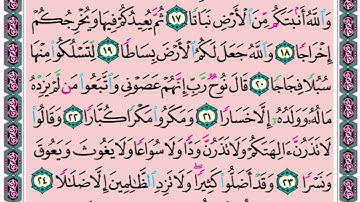 وَٱللَّهُ أَنۢبَتَكُم مِّنَ ٱلْأَرْضِ نَبَاتًا ١٧ ثُمَّ يُعِيدُكُمْ فِيهَا وَيُخْرِجُكُمْ
إِخْرَاجًا ١٨ وَٱللَّهُ جَعَلَ لَكُمُ ٱلْأَرْضَ بِسَاطًا ١٩ لِّتَسْلُكُوا۟ مِنْهَا
سُبُلًا فِجَاجًا ٢٠ قَالَ نُوحٌ رَّبِّ إِنَّهُمْ عَصَوْنِى وَٱتَّبَعُوا۟ مَن لَّمْ يَزِدْهُ
مَالُهُۥ وَوَلَدُهُۥٓ إِلَّا خَسَارًا ٢١ وَمَكَرُوا۟ مَكْرًا كُبَّارًا ٢٢ وَقَالُوا۟
لَا تَذَرُنَّ ءَالِهَتَكُمْ وَلَا تَذَرُنَّ وَدًّا وَلَا سُوَاعًا وَلَا يَغُوثَ وَيَعُوقَ
وَنَسْرًا ٢٣ وَقَدْ أَضَلُّوا۟ كَثِيرًا ۖ وَلَا تَزِدِ ٱلظَّـٰلِمِينَ إِلَّا ضَلَـٰلًا ٢٤